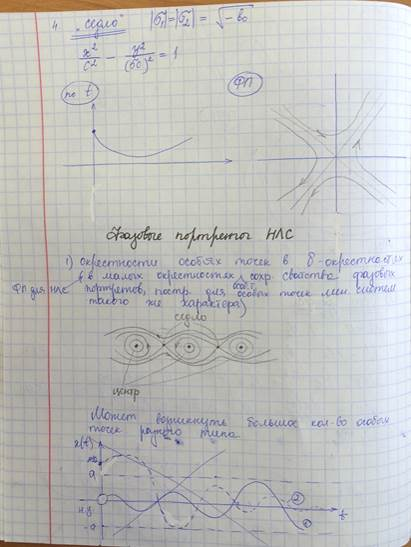 4. "Седло" |σ₁|=|σ₂| = √-b₀
x²/C² - y²/(σC)² = 1
по t ФП
Фазовые портреты НЛС
1) окрестности особых точек в δ-окрестностях
(в малых окрестностях сохр. свойства фазовых
ФП для НЛС портретов, постр. для особых точек лин. систем
такого же характера)
седло
центр
Может возникнуть большое кол-во особых
точек разного типа
x(t)
x₀
a
②
t
н.у.
-a
①